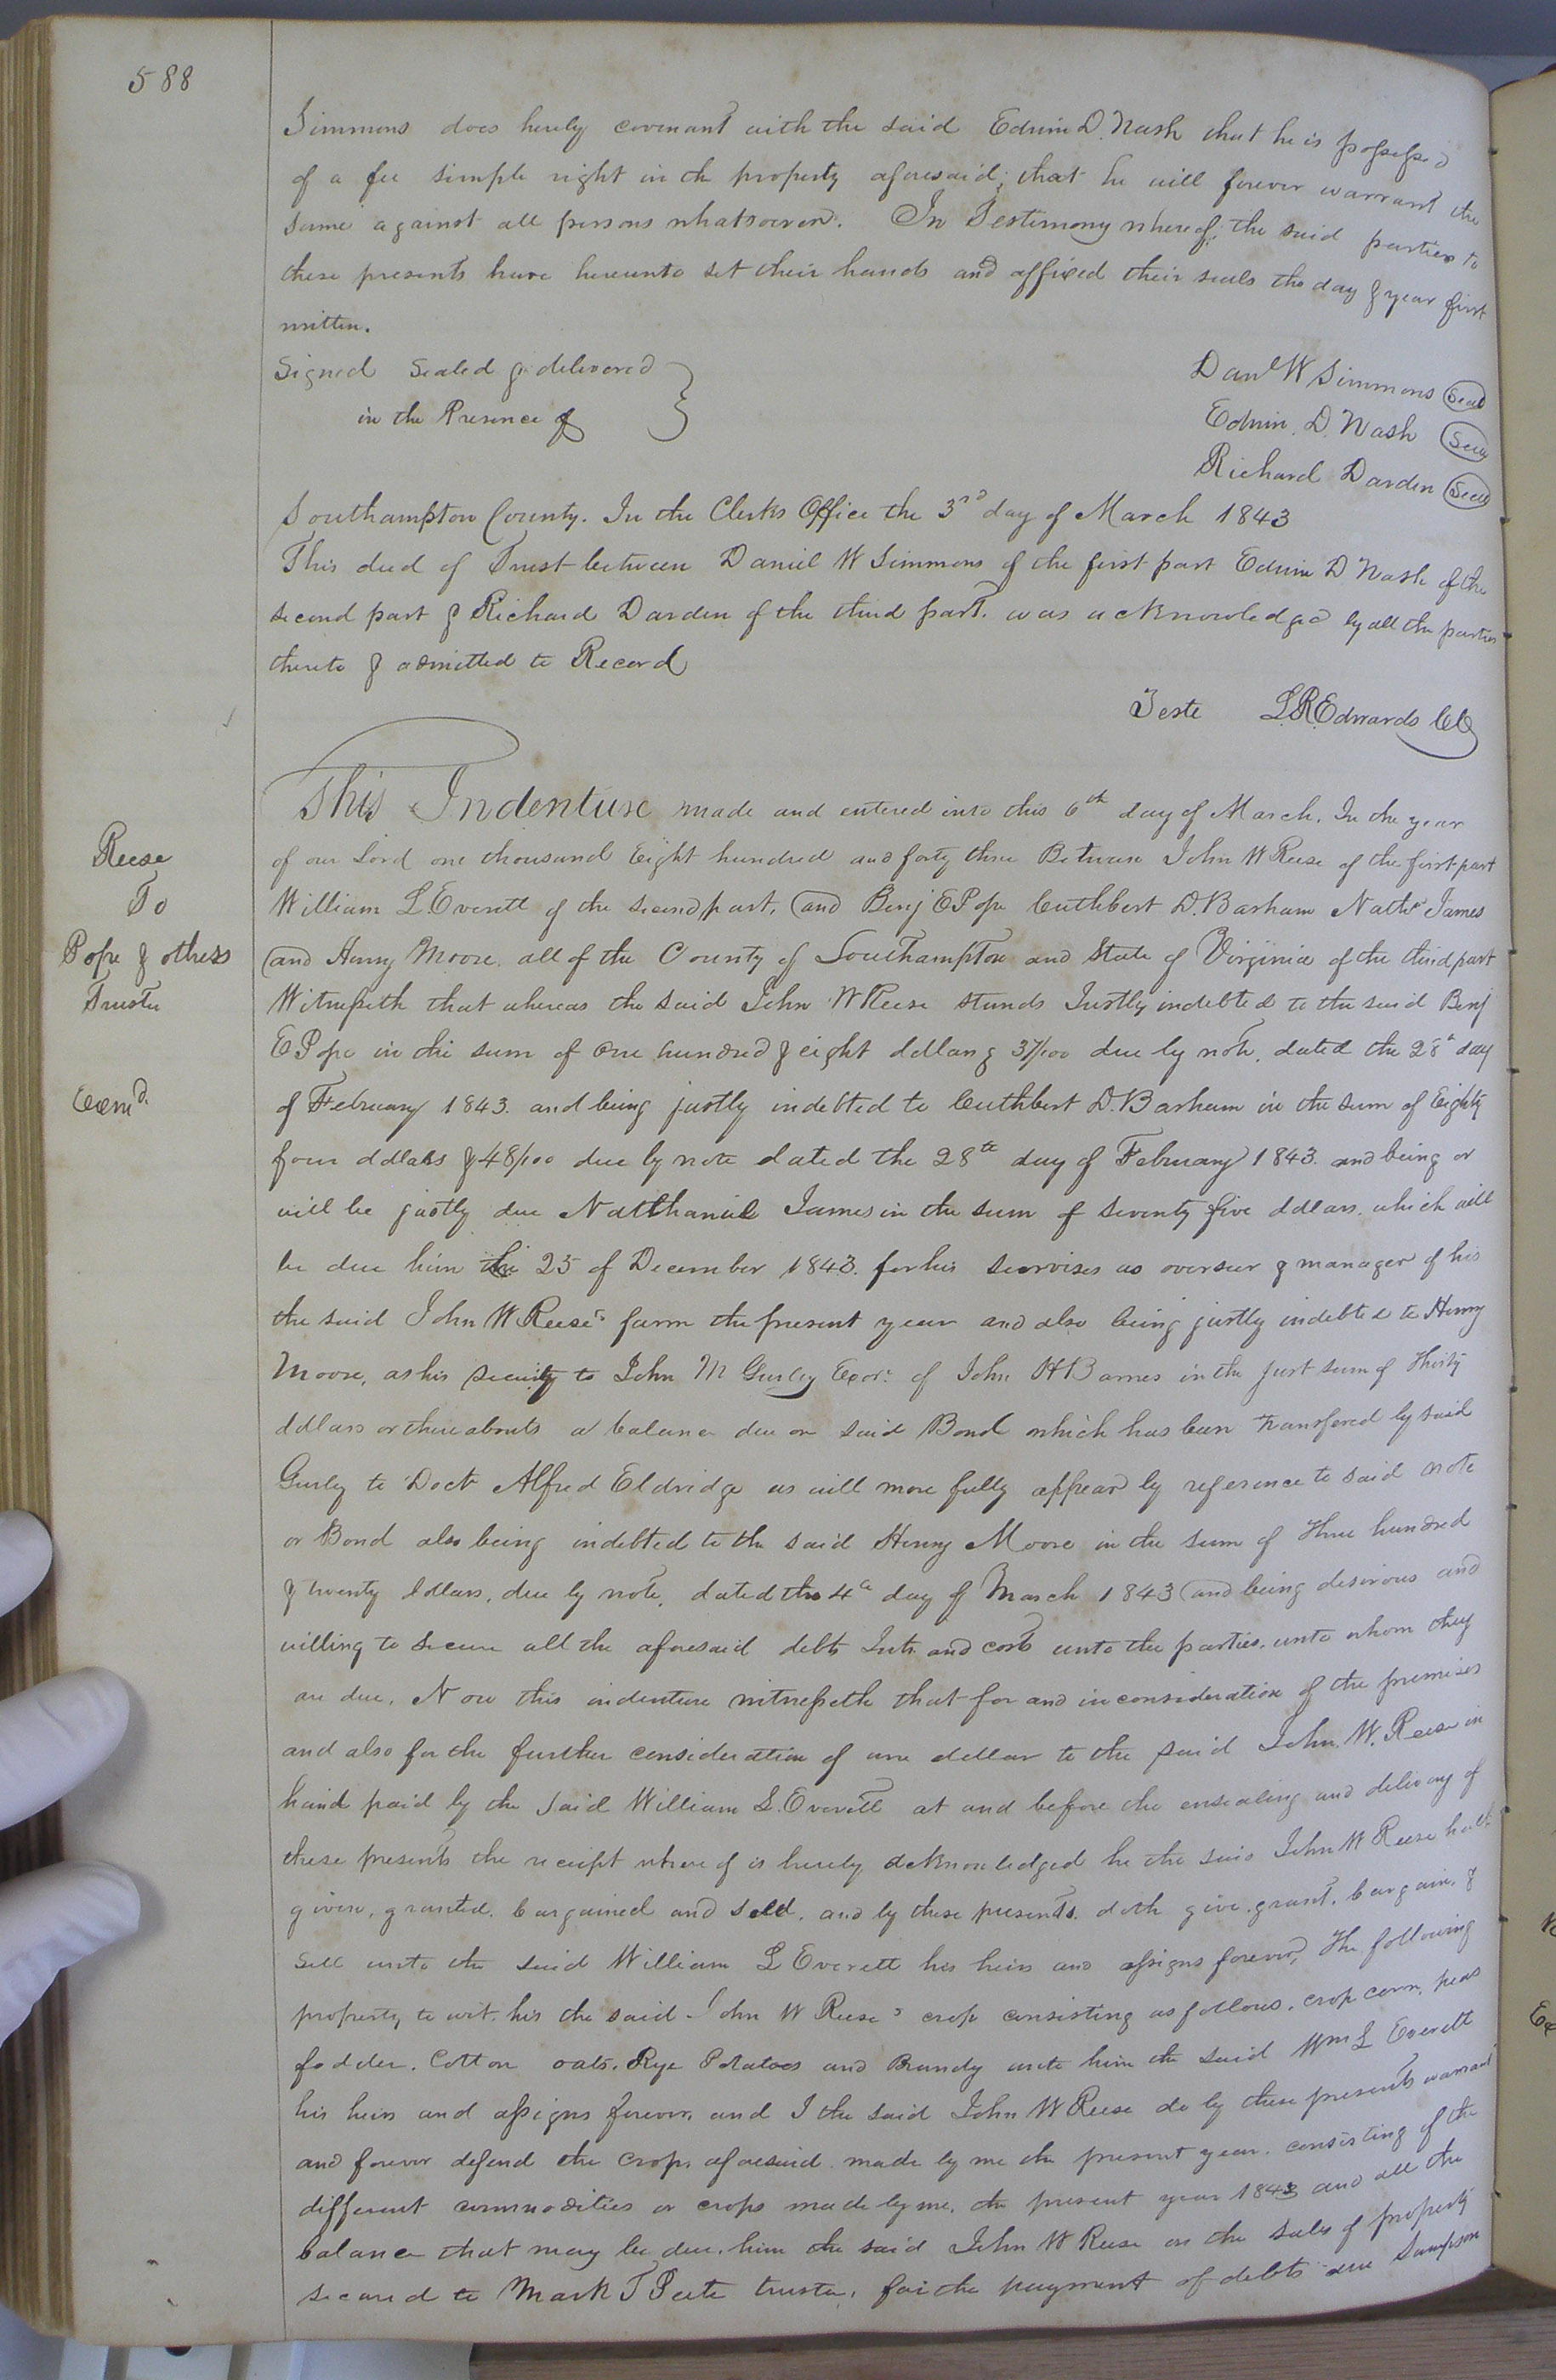 588
Simmons does hereby covenant with the said Edwin D. Nash that he is possessed
of a fee simple right in the property aforesaid; that he will forever warrant the
same against all persons whatsoever. In Testimony whereof, the said parties to
these presents have hereunto set their hands and affixed their seals the day & year first
written.
Signed Sealed & delivered
in the Presence of
Danl W Simmons Seal
Edwin. D. Nash Seal
Richard Darden Seal
Southampton County. In the Clerks Office the 3rd day of March 1843
This deed of Trust between Daniel W Simmons of the first part Edwin D Nash of the
second part & Richard Darden of the third part. was acknowledged by all the parties
thereto & admitted to Record
Teste L.R. Edwards
This Indenture made and entered into this 6th day of March. In the year
Reese
of our Lord one thousand Eight hundred and forty three Between John W Reese of the first part
To
William L. Everett of the second part, and Benj E Pope Cuthbert D. Barham Nathl James
Pope & others
and Henry Moore. all of the County of Southampton and State of Virginia of the third part
Trustee
Witnesseth that whereas the said John W Reese stands Justly indebted to the said Benj
E Pope in the sum of One hundred & eight dollars & 37/100 due by note, dated the 28th day
Exemd.
of February 1843. and being justly indebted to Cuthbert D. Barham in the sum of Eighty
four dollars & 48/100 due by note dated the 28th day of February 1843. and being or
will be justly due Natthaniel James in the sum of seventy five dollars. which will
be due him the 25 of December 1843. for his seorvises as overseer & manager of his
the said John W Reese's farm the present year and also being justly indebted to Henry
Moore, as his security to John M Gurley Exor: of John H Barnes in the just sum of Thirty
dollars or thereabouts a balance due on said Bond which has been transfered by said
Gurley to Doct Alfred Eldridge as will more fully appear by reference to said note
or Bond also being indebted to the said Henry Moore in the sum of Three hundred
& twenty dollars, due by note, dated the 4th day of March 1843 and being desirous and
willing to secure all the aforesaid debts Ints and costs unto the parties. unto whom they
are due. Now this indenture witnesseth that for and in consideration of the premises
and also for the further consideration of one dollar to the said John. W. Reese in
hand paid by the said William L. Everett at and before the ensealing and delivery of
these presents the receipt whereof is hereby acknowledged he the said John W Reese hath
given, granted. bargained and sold, and by these presents. doth give. grant. bargain. &
sell unto the said William L Everett his heirs and assigns forever, The following
property, to wit. his the said John W Reese's crop consisting as follows. crop corn, peas
fodder. Cotton oats. Rye Potatoes and Brandy unto him the said Wm L Everett
his heirs and assigns forever, and I the said John W Reese do by these presents warrant
and forever defend the crops aforesaid. made by me the present year. consisting of the
different commodities or crops made by me. the present year 1843 and all the
balance that may be due. him the said John W Reese on the sales of property
secured to Mark T Peete trustee, for the payment of debts due Sampson